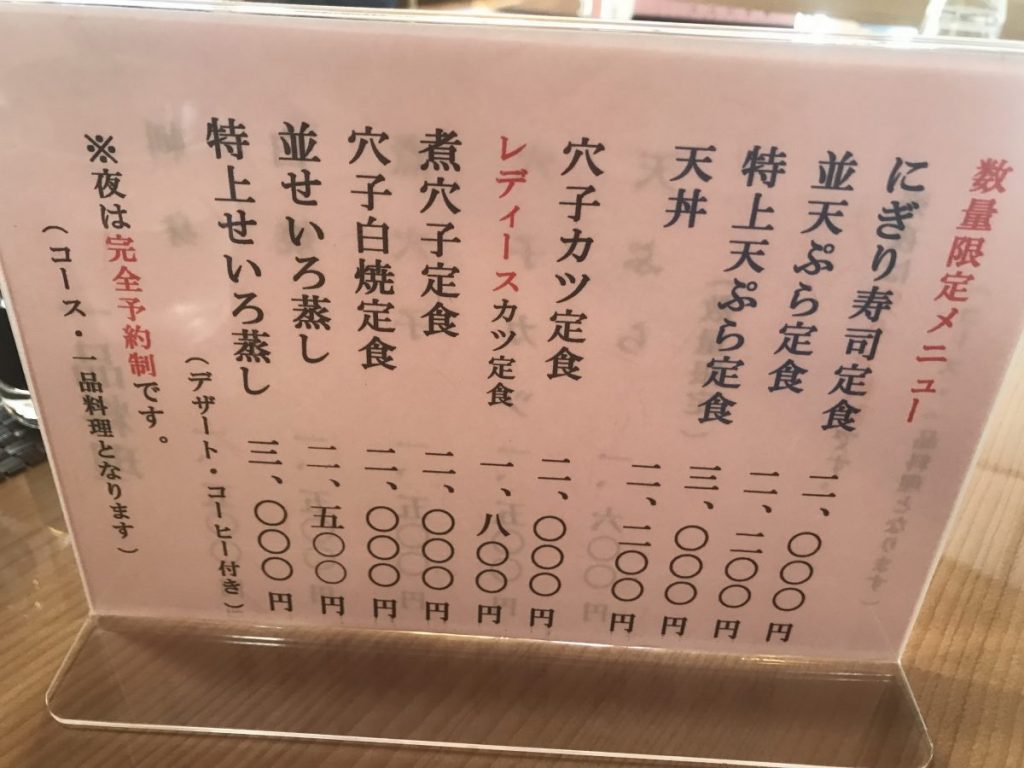 数量限定メニュー
にぎり寿司定食 二、〇〇〇円
並天ぷら定食 二、二〇〇円
特上天ぷら定食 三、〇〇〇円
天丼 二、二〇〇円
穴子カツ定食 二、〇〇〇円
レディースカツ定食 一、八〇〇円
煮穴子定食 二、〇〇〇円
穴子白焼定食 二、〇〇〇円
並せいろ蒸し 二、五〇〇円
特上せいろ蒸し 三、〇〇〇円
(デザート・コーヒー付き)
※夜は完全予約制です。
(コース・一品料理となります)